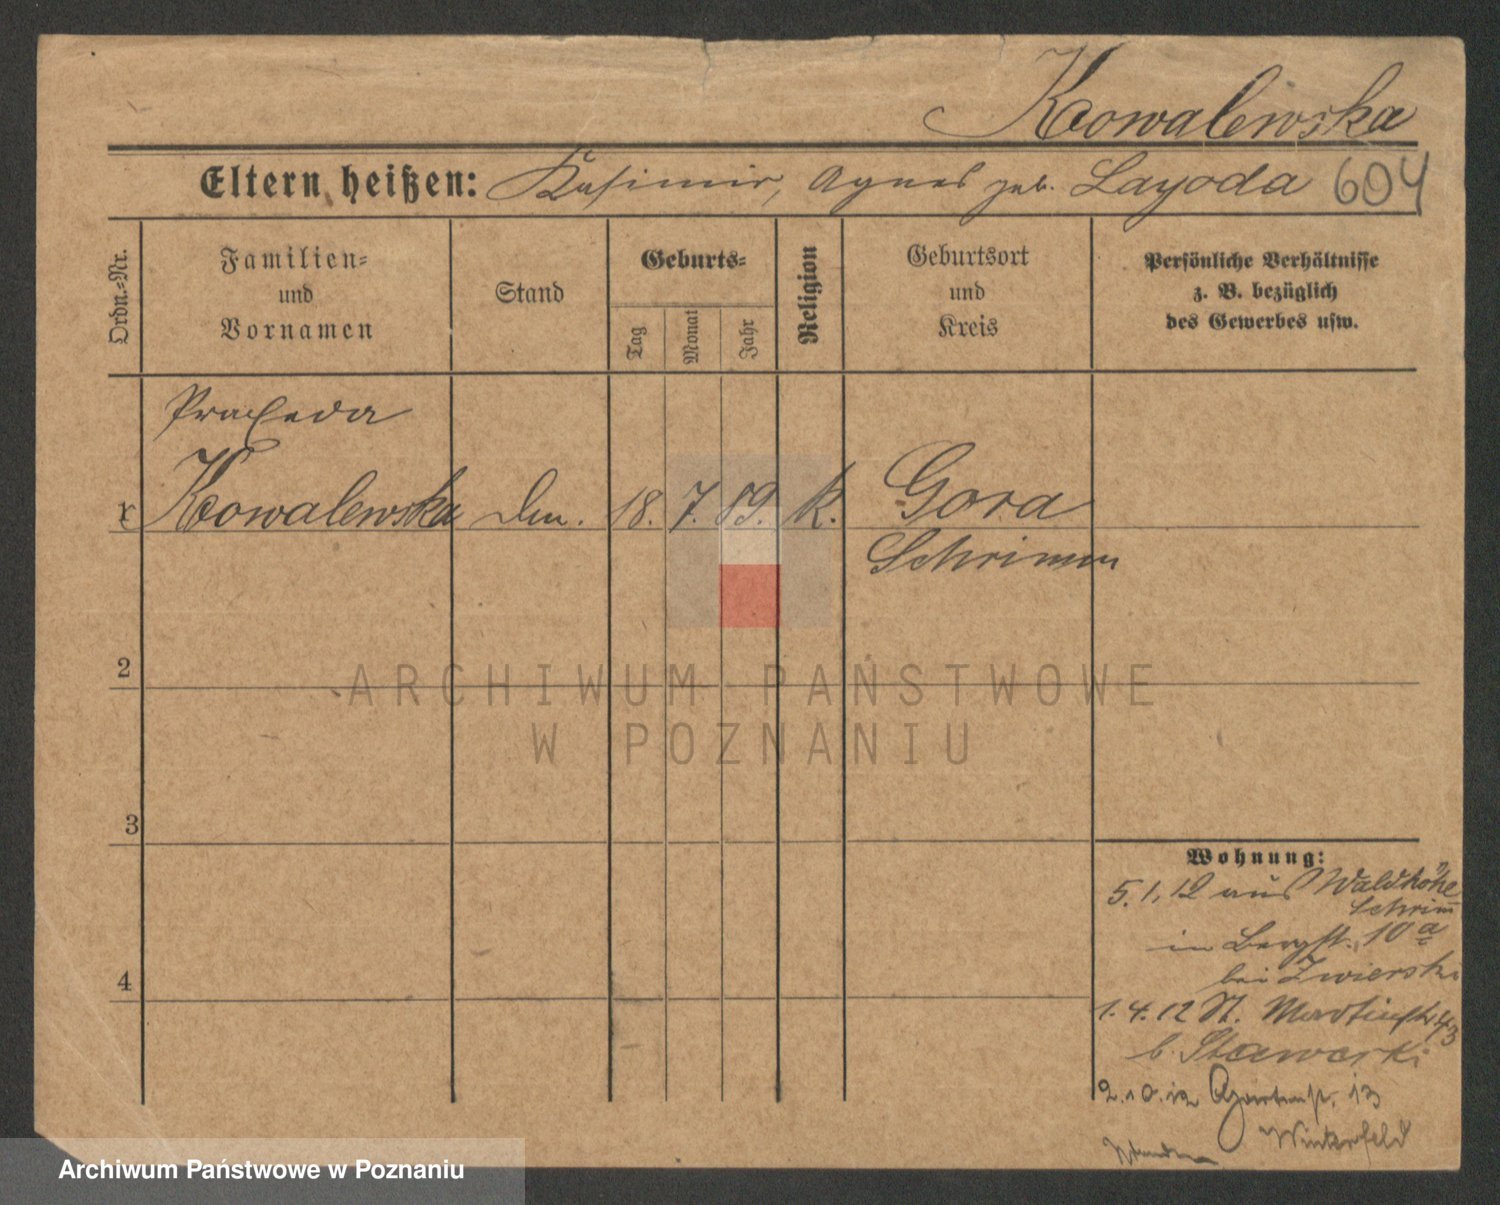 Kowalewska
Eltern heißen: Kasimir, Agnes geb. Layoda 604
Ordn.-Nr.
Familien-
und
Vornamen
Stand
Geburts-
Tag
Monat
Jahr
Religion
Geburtsort
und
Kreis
Persönliche Verhältnisse
z. B. bezüglich
des Gewerbes usw.
Praxeda
1 Kowalewska 18. 7. 89. k. Gora
Schrimm
2
3
4
Wohnung:
5.1.12 aus Waldhöhe
Schrim
in Bergst. 10 a
bei Zwierski
1.4.12 St. Martinstr 43
b. Stawarski
2.10.12 13
Winterfeld
ARCHIWUM PAŃSTWOWE
W POZNANIU
Archiwum Państwowe w Poznaniu